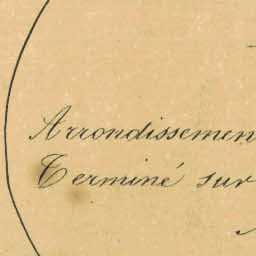 Arrondissemen
Terminé sur